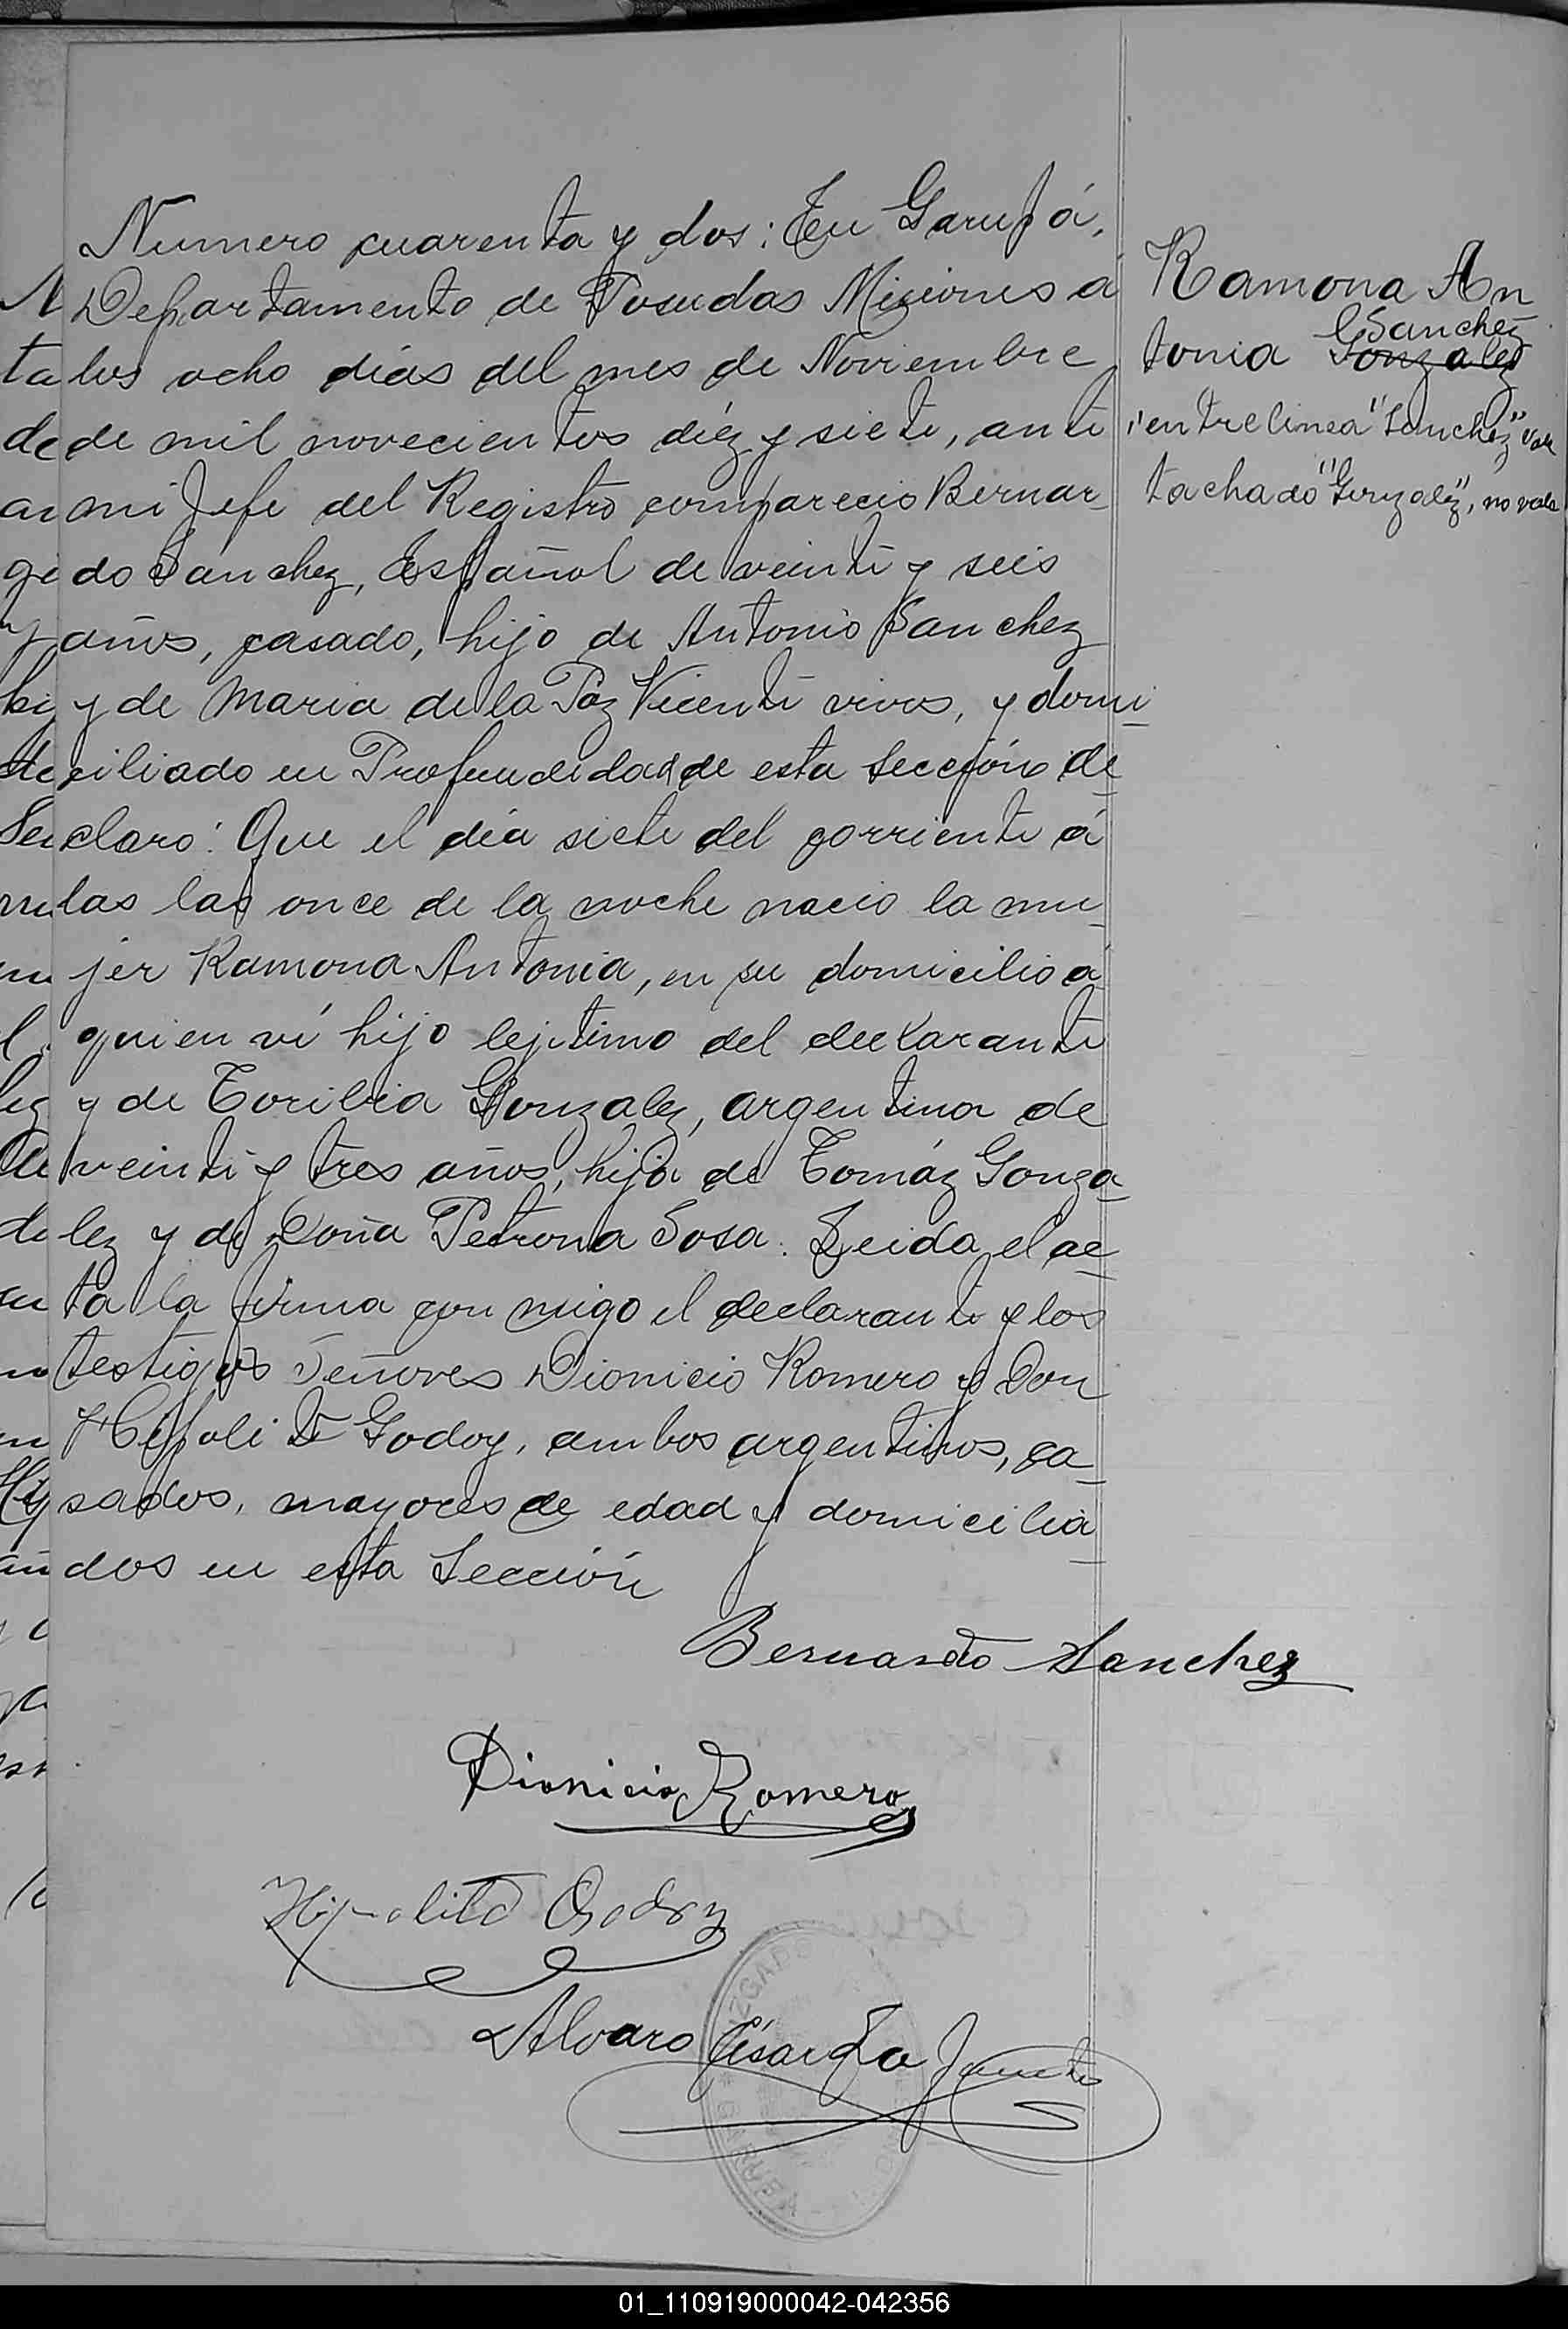 Numero cuarenta y dos: En Garupá,
Departamento de Posadas Misiones á
los ocho días del mes de Noviembre
de mil novecientos diéz y siete, ante
mi Jefe del Registro comparecio Bernar-
do Sanchez, Español de veinte y seis
años, casado, hijo de Antonio Sanchez
y de Maria de la Paz Vicente vivos, y domi-
ciliado en Profundidad de esta Sección de-
claro: Que el día siete del corriente á
las las once de la noche nacio la mu-
jer Ramona Antonia, en su domicilio á
quien ví hijo lejitimo del declarante
y de Toribia Gonzalez, argentina de
veinte y tres años, hija de Tomáz Gonza-
lez y de Doña Petrona Sosa. Leida el ac-
ta la firma con migo el declarante y los
testigos Señores Dionicio Romero y Don
Hipolito Godoy, ambos argentinos, ca-
sados, mayores de edad y domicilia-
dos en esta Sección
Ramona An
Sanchez
tonia Gonzalez
"entrelinea "Sanchez" vale
tachado "Gonzalez", no vale
Bernardo Sanchez
Dionicio Romero
Hipolito Godoy
Alvaro César
01_110919000042-042356